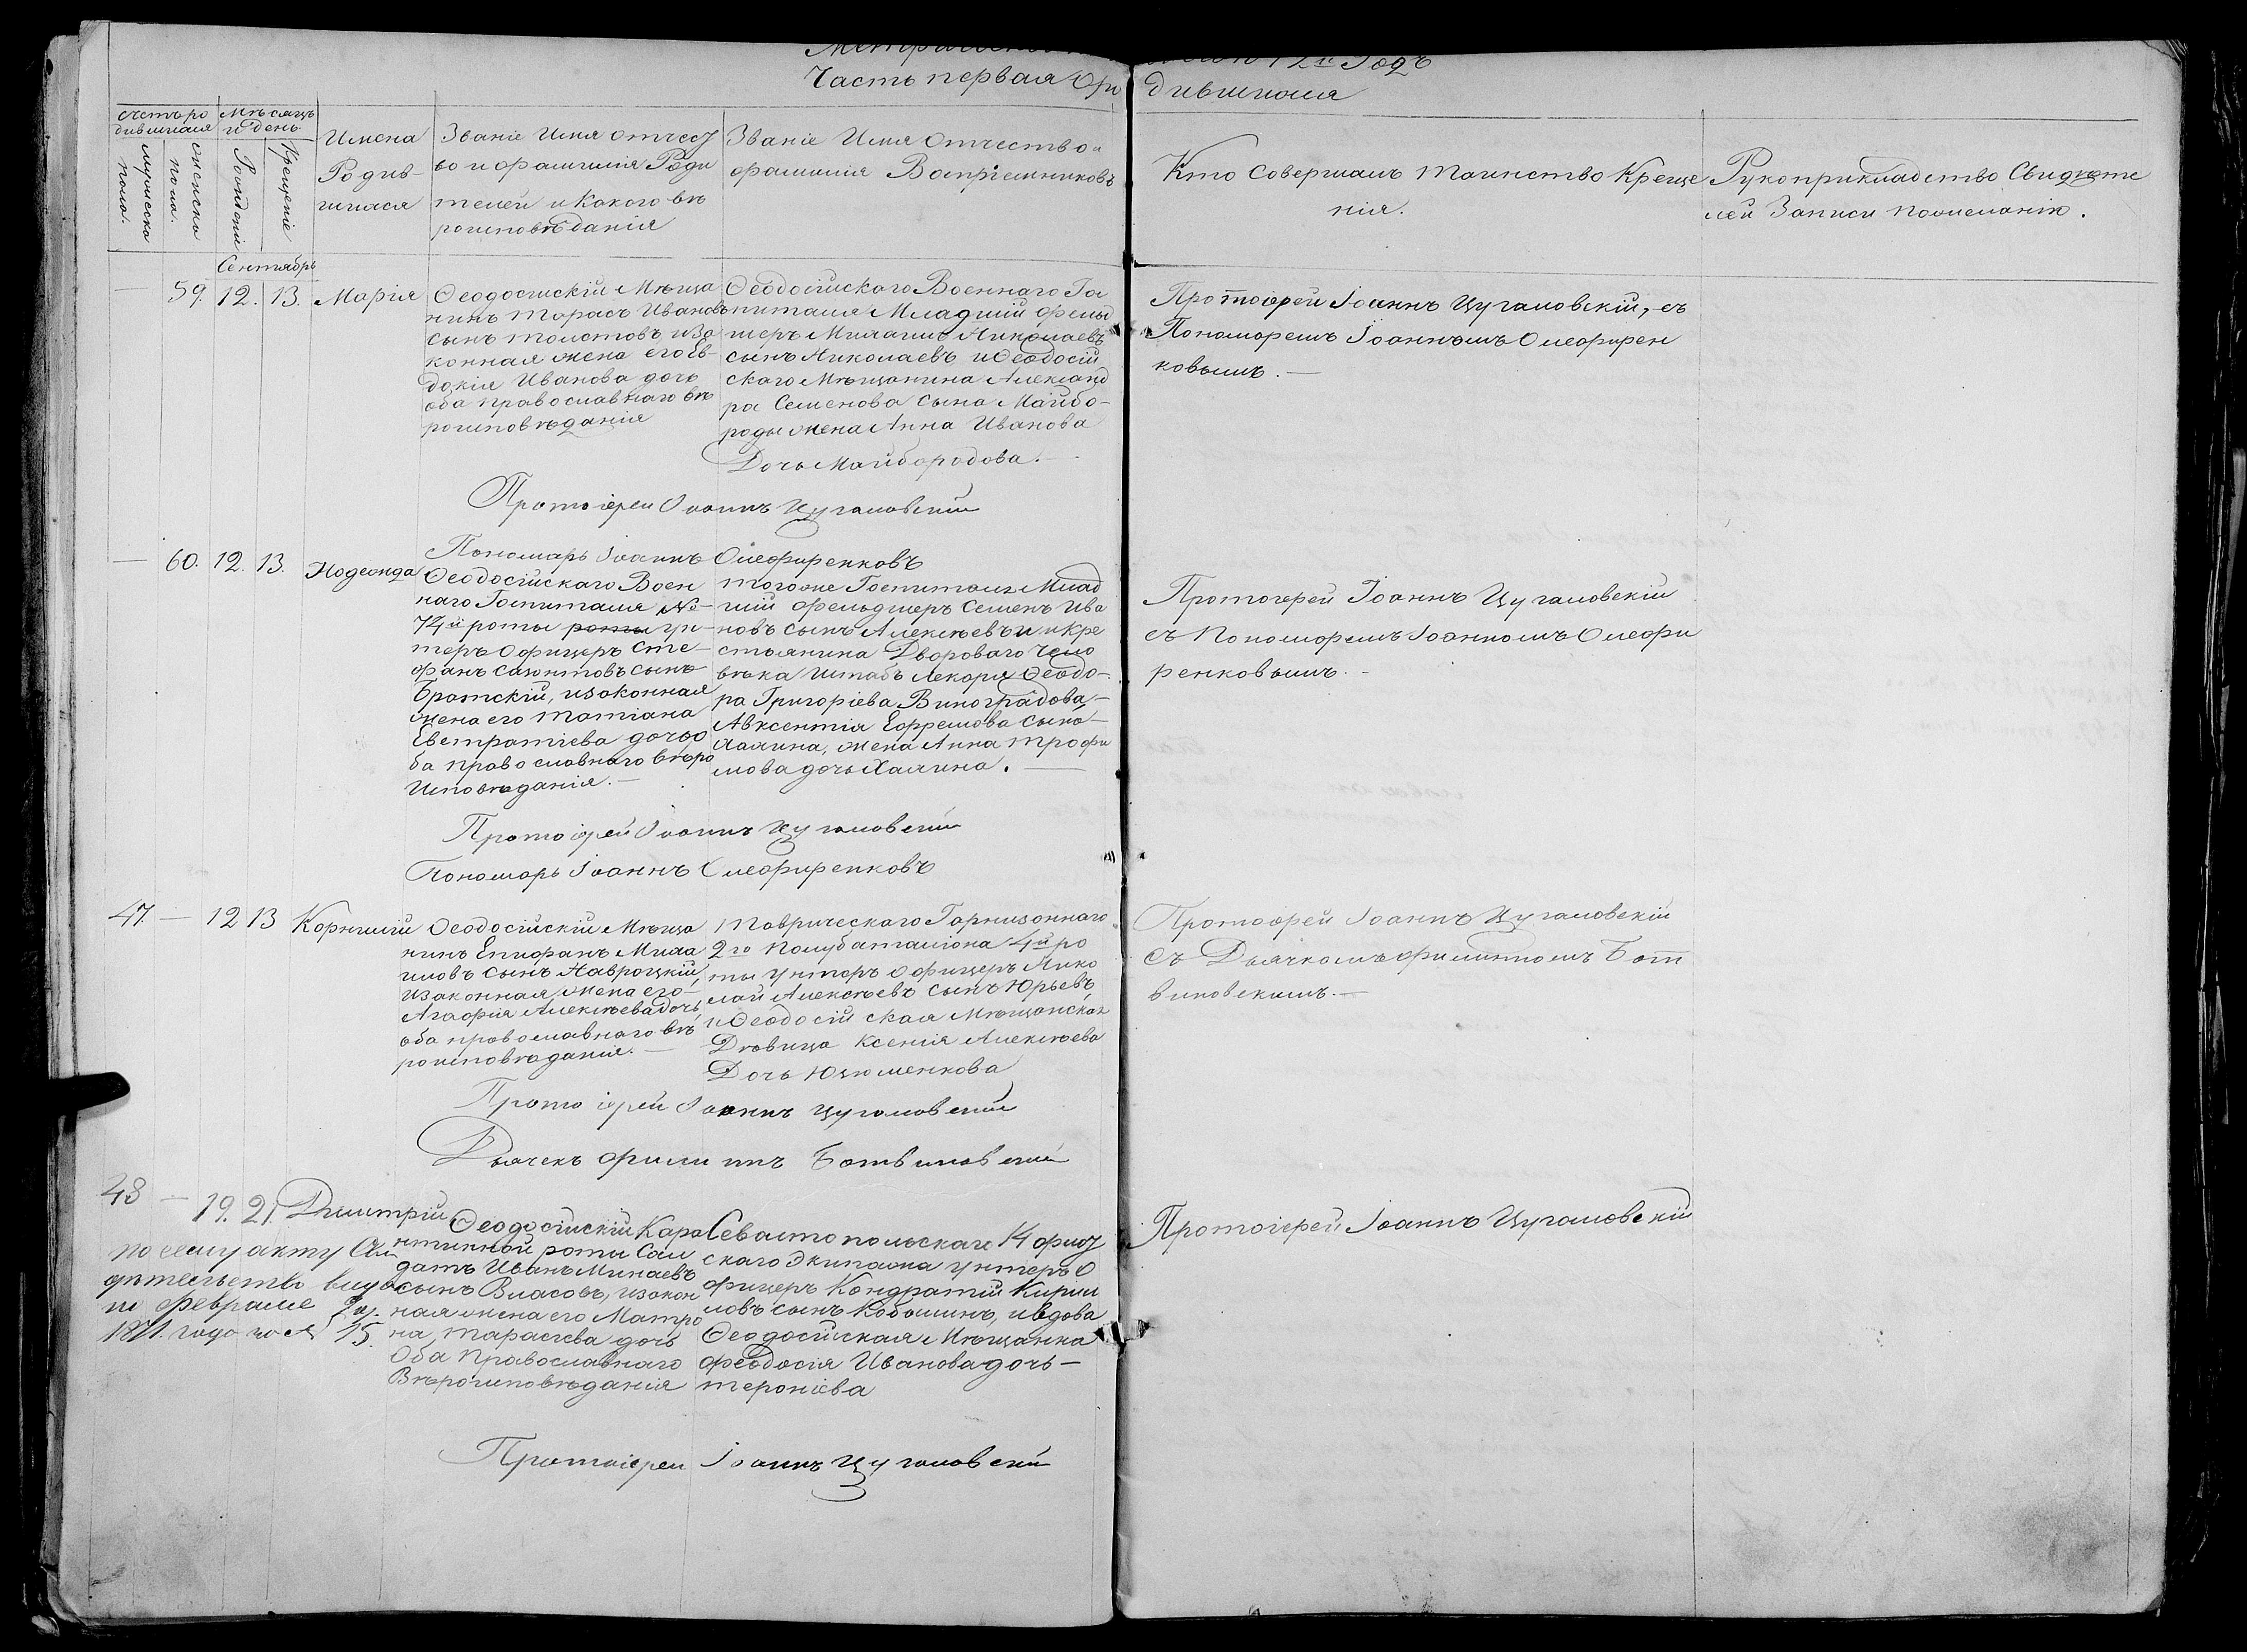 Часть первая О ро
дившихся
Счетъ ро
дившихся
Мѣсяцъ
и день
мужеска
пола.
женска
пола.
Рожденія
Крещеніе
Имена
Родив-
шихся
Званіе Имя отчест
во и фамилія Роди
телей и какого вѣ
роисповѣданія
Званіе Имя Отчество и
фамилія Воспріемниковъ
Кто совершалъ таинство Креще
нія.
Рукоприкладство Свидѣте
лей Записи по желанію.
Сентябрь
— 59. 12. 13. Марія
Ѳеодосійскій Мѣща
нинъ Тарасъ Ивановъ
сынъ Толстовъ и за
конная жена его Ев-
докія Иванова дочь
оба православнаго вѣ
роисповѣданія
Ѳеодосійскаго Военнаго Го
шпиталя Младшій фельд
шеръ Николаевъ
сынъ Николаевъ и Ѳеодосій
скаго Мѣщанина Александ
ра Семенова сына Майбо-
роды жена Анна Иванова
Дочь Майбородова.
Протоіерей Іоаннъ Цугаловскій, съ
Пономаремъ Іоанномъ Олефирен
ковымъ.—
Протоіерей Іоаннъ Цугаловскій
Пономарь Іоаннъ Олефиренковъ
— 60. 12. 13. Надежда
Ѳеодосійскаго Воен
наго Госпиталя №
74й роты роты Ун-
теръ Офицеръ Сте-
фанъ сынъ
Братскій, и законная
жена его Татіана
Евстратіева дочь о
ба православнаго вѣро
Исповѣданія.—
того же Госпиталя Млад
шій фельдшеръ Семенъ Ива
новъ сынъ Алексѣевъ и Кре
стьянина Двороваго Чело
вѣка Штабъ Лекаря Ѳеодо-
ра Григоріева Виноградова,
Авксентія Ефремова сына
Халина, жена Анна Трофи
мова дочь Халина.—
Протоіерей Іоаннъ Цугаловскій
съ Пономаремъ Іоанномъ Олефи
ренковымъ.—
Протоіерей Іоаннъ Цугаловскій
Пономарь Іоаннъ Олефиренковъ
47. — 12 13 Корнилій
Ѳеодосійскій Мѣща
нинъ Епифанъ Миха
иловъ сынъ Навроцкій,
и законная жена его
Агафія Алексѣева дочь,
оба православнаго вѣ
роисповѣданія.—
Таврическаго Гарнизоннаго
2го Полубаталіона 4й ро
ты Унторъ Офицеръ Нико
лай Алексѣевъ сынъ Юрьевъ
и Ѳеодосійская Мѣщанская
Дѣвица Ксенія Алексѣева
Дочь Юзюменкова
Протоіерей Іоаннъ Цугаловскій
Съ Дьячкомъ Филиппомъ Бот
виновскимъ.—
Протоіерей Іоаннъ Цугаловскій
Дьячекъ Филиппъ Ботвиновскій
48 — 19. 21. Димитрій
Ѳеодосійскій Кара
нтинной роты Сол
датъ Иванъ Минаевъ
сынъ Власовъ, и закон
ная жена его Матро
на Тарасіева дочь
Оба Православнаго
Вѣроисповѣданія
Севастопольскаго 14 флот
скаго Экипажа Унтеръ О
фицеръ Кондратій Кирил
ловъ сынъ Кобылинъ, и вдова
Ѳеодосійская Мѣщанка
Феодосія Иванова дочь—
Теронiева
Протоіерей Іоаннъ Цугаловскій
по сему акту
дѣтельство выда
но Февраля
1871. года за № 15.
Протоіерей Іоаннъ Цугаловскій